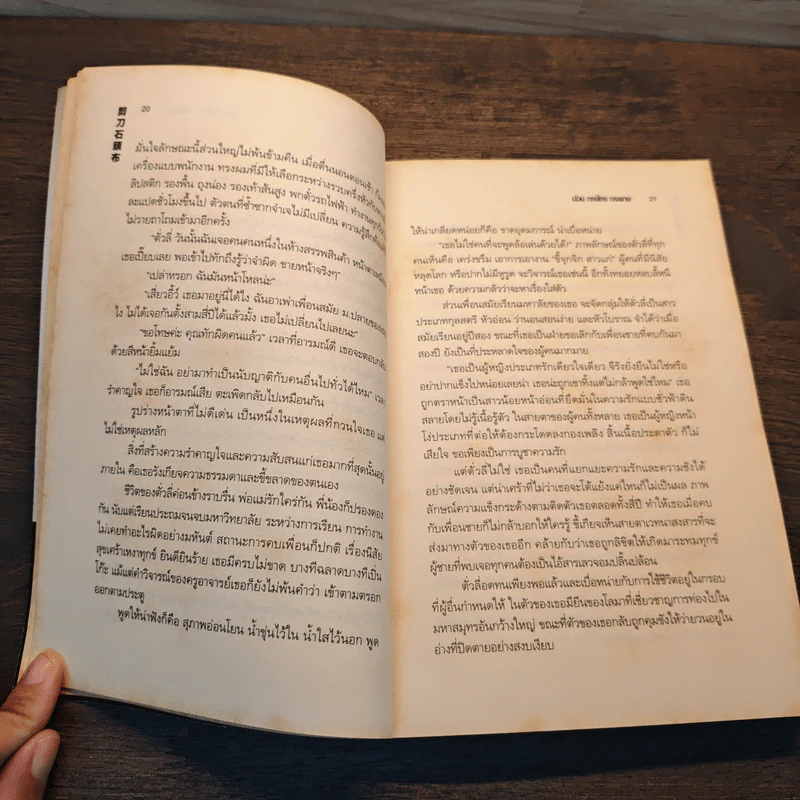 20
剪刀石頭布
มั่นใจลักษณะนี้ส่วนใหญ่ไม่พ้นข้ามคืน เมื่อตื่นนอนตอนเช้า
เครื่องแบบพนักงาน ทรงผมที่มีให้เลือกระหว่างรวบครึ่งหัวกับ
ลิปสติก รองพื้น ถุงน่อง รองเท้าส้นสูง พกตั๋วรถไฟฟ้า ทำงานทุกวัน
ละแปดชั่วโมงขึ้นไป ตัวตนที่ซ้ำซากจำเจไม่มีเปลี่ยน ความรู้สึก
ไม่วายถาโถมเข้ามาอีกครั้ง
"ตั่วลี่ วันนั้นฉันเจอคนคนหนึ่งในห้างสรรพสินค้า หน้าตาเหมือน
เธอเปี๊ยบเลย พอเข้าไปทักถึงรู้ว่าจำผิด ขายหน้าจริงๆ"
"เปล่าหรอก ฉันมันหน้าโหลน่ะ"
"เสี่ยวอี้ว์ เธอมาอยู่นี่ได้ไง ฉันอาเฟาเพื่อนสมัย ม.ปลายของ
ไง ไม่ได้เจอกันตั้งสามสี่ปีได้แล้วมั้ง เธอไม่เปลี่ยนไปเลยนะ"
"ขอโทษค่ะ คุณทักผิดคนแล้ว" เวลาที่อารมณ์ดี เธอจะตอบกลับ
ด้วยสีหน้ายิ้มแย้ม
"ไม่ใช่ฉัน อย่ามาทำเป็นนับญาติกับคนอื่นไปทั่วได้ไหม" เวลา
รำคาญใจ เธอก็อารมณ์เสีย ตะเพิดกลับไปเหมือนกัน
รูปร่างหน้าตาที่ไม่ดีเด่น เป็นหนึ่งในเหตุผลที่กวนใจเธอ แต่
ไม่ใช่เหตุผลหลัก
สิ่งที่สร้างความรำคาญใจและความสับสนแก่เธอมากที่สุดนั้นอยู่
ภายใน คือเธอรังเกียจความธรรมดาและขี้ขลาดของตนเอง
ชีวิตของตั่วลี่ค่อนข้างราบรื่น พ่อแม่รักใคร่กัน พี่น้องก็ปรองดอง
กัน นับแต่เรียนประถมจนจบมหาวิทยาลัย ระหว่างการเรียน การทำงาน
ไม่เคยทำอะไรผิดอย่างมหันต์ สถานะการคบเพื่อนก็ปกติ เรื่องนิสัย
สุขเศร้าเหงาทุกข์ ยินดียินร้าย เธอมีครบไม่ขาด บางทีฉลาดบางทีเป็น
โก๊ะ แม้แต่คำวิจารณ์ของครูอาจารย์เธอก็ยังไม่พ้นคำว่า เข้าตามตรอก
ออกตามประตู
พูดให้น่าฟังก็คือ สุภาพอ่อนโยน น้ำขุ่นไว้ใน น้ำใสไว้นอก พูด
21
ให้น่าเกลียดหน่อยก็คือ ขาดอุดมการณ์ น่าเบื่อหน่าย
"เธอไม่ใช่คนที่จะพูดล้อเล่นด้วยได้!" ภาพลักษณ์ของตั่วลี่ที่ทุก
คนเห็นคือ เคร่งขรึม เอาการเอางาน "ขี้จุกจิก สาวแก่" ผู้คนที่มีนิสัย
หลุดโลก หรือปากไม่มีหูรูด จะวิจารณ์เธอเช่นนี้ อีกทั้งทยอยหลบลี้หนี
หน้าเธอ ด้วยความกลัวว่าจะหาเรื่องใส่ตัว
ส่วนเพื่อนสมัยเรียนมหา'ลัยของเธอ จะจัดกลุ่มให้ตั่วลี่เป็นสาว
ประเภทกุลสตรี หัวอ่อน ว่านอนสอนง่าย และหัวโบราณ จำได้ว่าเมื่อ
สมัยเรียนอยู่ปีสอง ขณะที่เธอเป็นฝ่ายขอเลิกกับเพื่อนชายที่คบกันมา
สองปี ยังเป็นที่ประหลาดใจของผู้คนมากมาย
"เธอเป็นผู้หญิงประเภทรักเดียวใจเดียว จีรังยั่งยืนไม่ใช่หรือ
อย่าปากแข็งไปหน่อยเลยน่า เธอน่ะถูกเขาทิ้งแต่ไม่กล้าพูดใช่ไหม" เธอ
ถูกตราหน้าเป็นสาวน้อยหน้าอ่อนที่ยึดมั่นในความรักแบบชั่วฟ้าดิน
สลายโดยไม่รู้เนื้อรู้ตัว ในสายตาของผู้คนทั้งหลาย เธอเป็นผู้หญิงหน้า
โง่ประเภทที่ต่อให้ต้องกระโดดลงกองเพลิง สิ้นเนื้อประดาตัว ก็ไม่
เสียใจ ขอเพียงเป็นการบูชาความรัก
แต่ตั่วลี่ไม่ใช่ เธอเป็นคนที่แยกแยะความรักและความชังได้
อย่างชัดเจน แต่น่าเศร้าที่ไม่ว่าเธอจะโต้แย้งแค่ไหนก็ไม่เป็นผล ภาพ
ลักษณ์ความแข็งกระด้างตามติดตัวเธอตลอดทั้งสี่ปี ทำให้เธอเมื่อคบ
กับเพื่อนชายก็ไม่กล้าบอกให้ใครรู้ ขี้เกียจเห็นสายตาเวทนาสงสารที่จะ
ส่งมาทางตัวของเธออีก คล้ายกับว่าเธอถูกลิขิตให้เกิดมาระทมทุกข์
ผู้ชายที่พบเจอทุกคนต้องเป็นไอ้สารเลวจอมปลิ้นปล้อน
ตัวลี่อดทนเพียงพอแล้วและเบื่อหน่ายกับการใช้ชีวิตอยู่ในกรอบ
ที่ผู้อื่นกำหนดให้ ในตัวของเธอมียีนของโลมาที่เชี่ยวชาญการท่องไปใน
มหาสมุทรอันกว้างใหญ่ ขณะที่ตัวของเธอกลับถูกคุมขังให้ว่ายวนอยู่ใน
อ่างที่ปิดตายอย่างสงบเงียบ